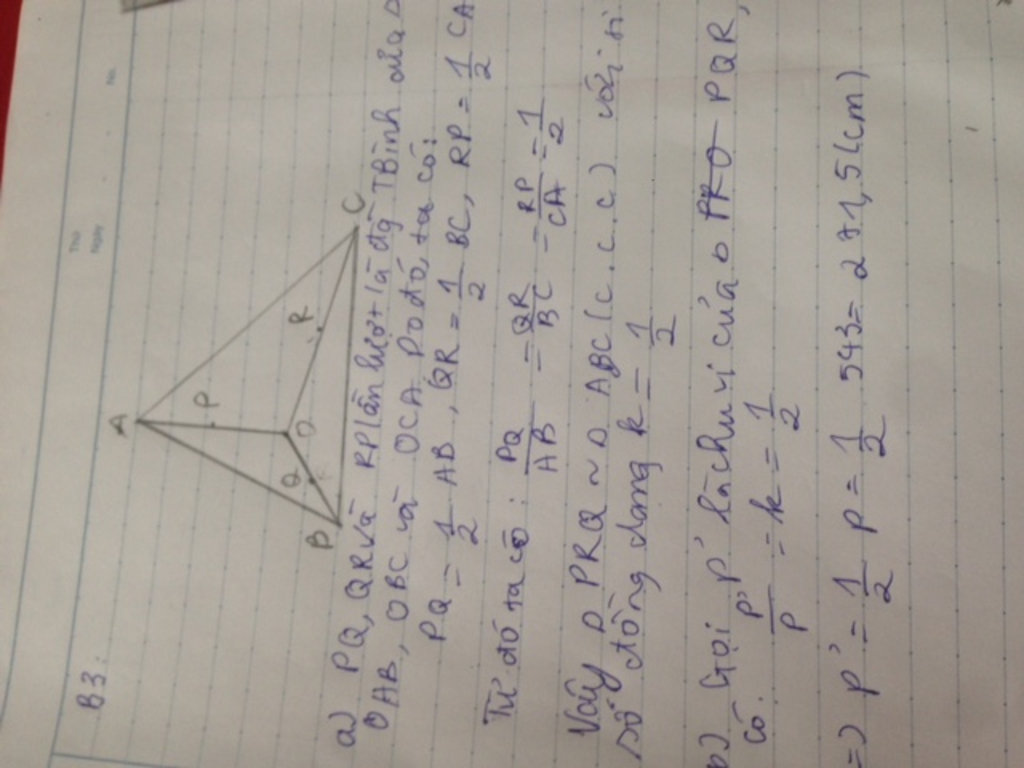 B3:
A
P
Q
O
R
B
C
a) PQ, QR và RP lần lượt là đg TBình của Δ
OAB, OBC và OCA Do đó, ta có:
PQ = 1/2 AB, QR = 1/2 BC, RP = 1/2 CA
Từ đó ta có: PQ/AB = QR/BC = RP/CA = 1/2
Vậy Δ PRQ ~ Δ ABC (c.c.c) với
số đồng dạng k = 1/2
b) Gọi P' là chu vi của Δ PRQ PQR,
có. P'/P = k = 1/2
=) P' = 1/2 P = 1/2 543 = 271,5 (cm)